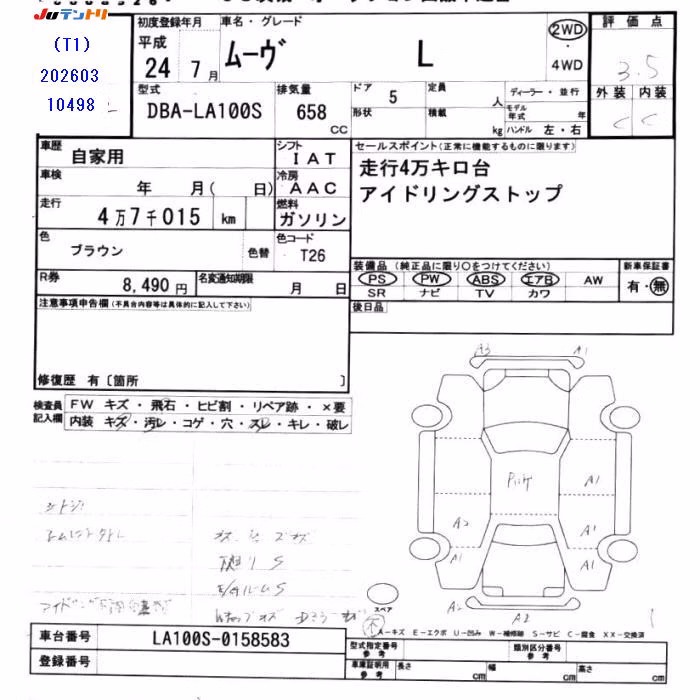 JUテントリ
(T1)
202603
10498
初度登録年月
平成
24 7月
車名・グレード
ムーヴ L
2WD
4WD
評価点
3.5
外装 内装
C C
型式
DBA-LA100S
排気量
658 CC
ドア 5
形状
定員 人
積載 kg
ディーラー・並行
モデル年式 年
ハンドル 左・右
車歴 自家用
シフト IAT
車検 年 月( 日)
冷房 AAC
走行 4万7千015 km
燃料 ガソリン
色 ブラウン 色替
色コード T26
R券 8,490円
名変通知期限 月 日
セールスポイント(正常に機能するものに限ります)
走行4万キロ台
アイドリングストップ
装備品(純正品に限り〇をつけてください)
PS PW ABS エアB AW
SR ナビ TV カワ
新車保証書
有・無
後日品
注意事項申告欄(不具合内容等は具体的に記入して下さい)
修復歴 有〔箇所 〕
検査員記入欄
FW キズ・飛石・ヒビ割・リペア跡・×要
内装 キズ・汚レ・コゲ・穴・スレ・キレ・破レ
A3 A1
A1
A2 A1
A1 A1
A2 A2
スペア
A-キズ E-エクボ U-凹み W-補修跡 S-サビ C-腐食 XX-交換済
車台番号 LA100S-0158583
登録番号
型式指定番号 参考
類別区分番号 参考
車庫証明用 参考 長さ cm 幅 cm 高さ cm